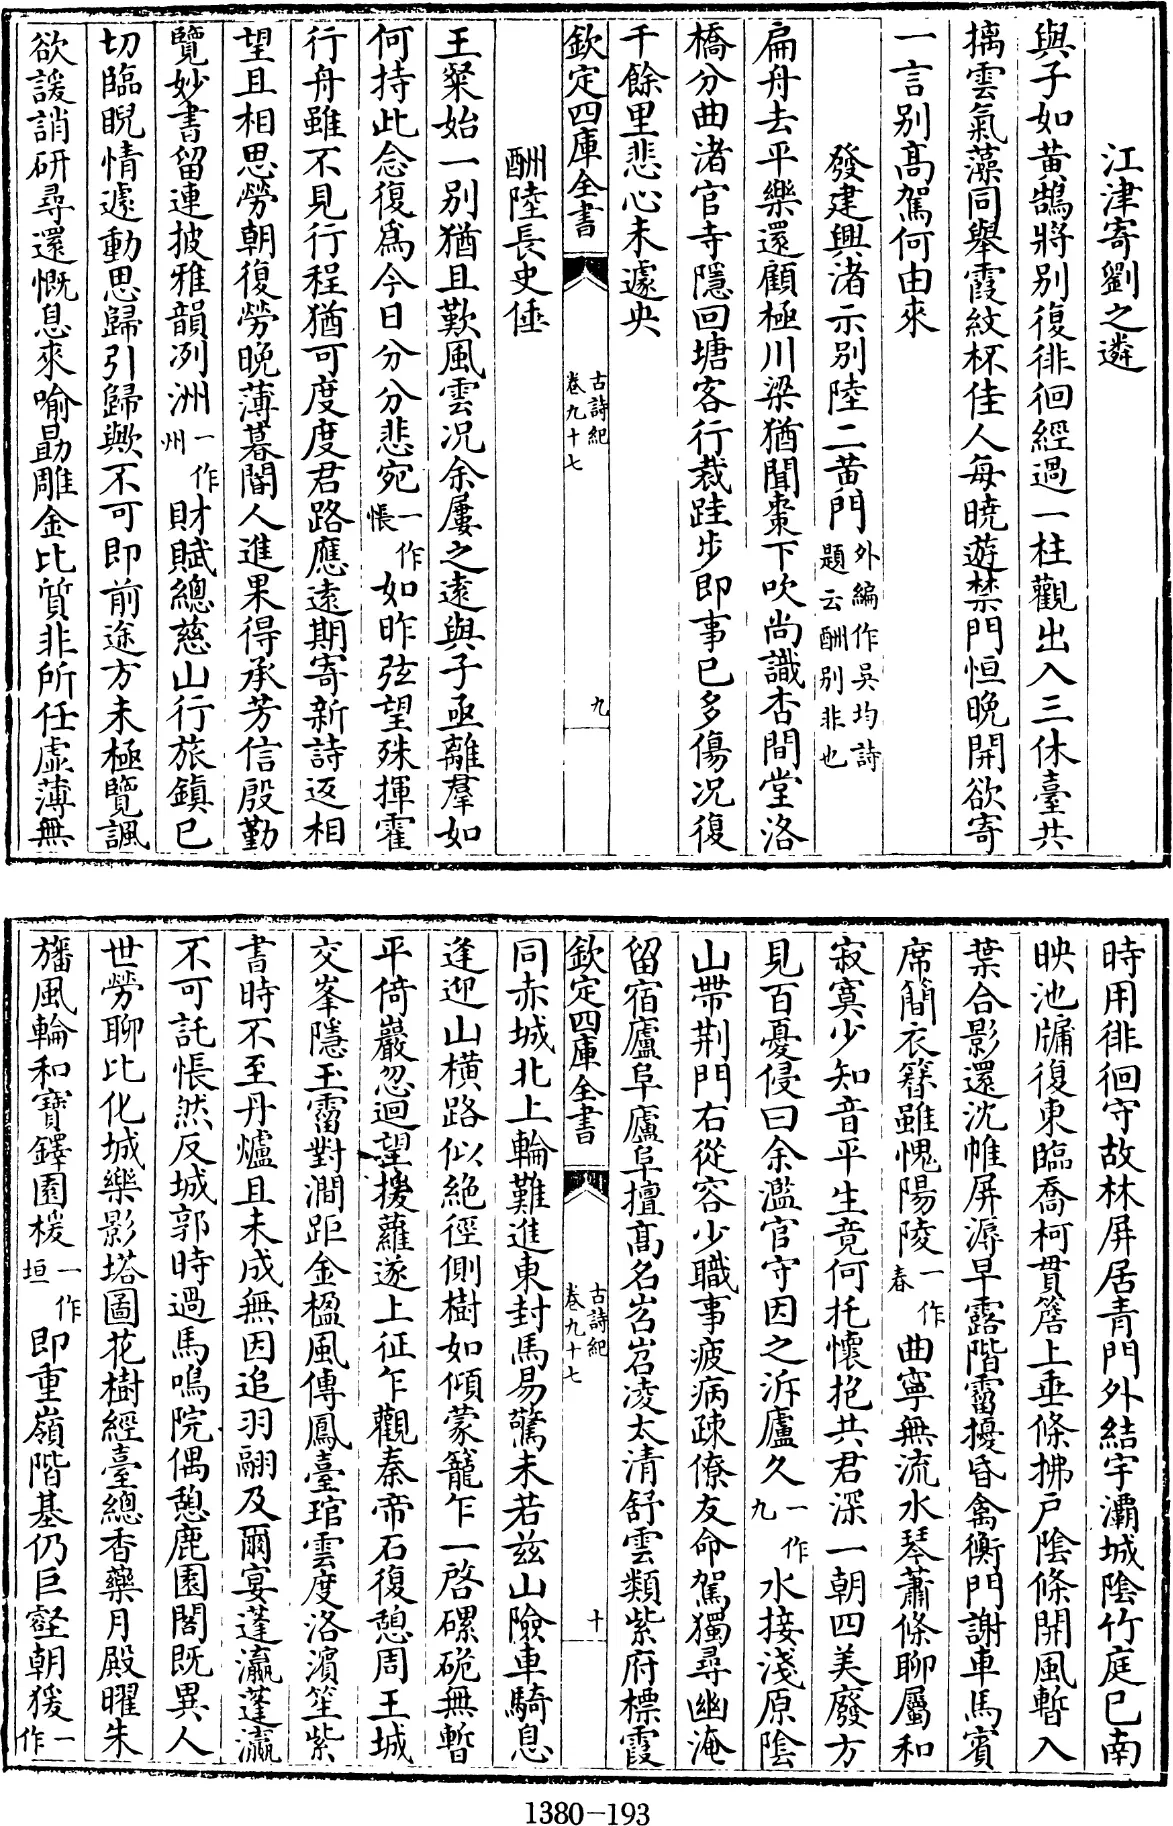 江津寄劉之遴
與子如黃鵠將別復徘徊經過一柱觀出入三休臺共
摛雲氣藻同舉霞紋杯佳人每曉遊禁門恒晚開欲寄
一言別髙駕何由來
發建興渚示別陸二黃門外編作吳均詩題云酬別非也
扁舟去平樂還顧極川梁猶聞棗下吹尚識杏間堂洛
橋分曲渚官寺隱回塘客行裁跬步即事已多傷况復
千餘里悲心未遽央
欽定四庫全書 古詩紀卷九十七 九
酬陸長史倕
王粲始一別猶且歎風雲况余屢之遠與子亟離羣如
何持此念復爲今日分分悲宛一作悵如昨弦望殊揮霍
行舟雖不見行程猶可度度君路應遠期寄新詩返相
望且相思勞朝復勞晚薄暮閽人進果得承芳信殷勤
覽妙書留連披雅韻冽洲一作州財賦總慈山行旅鎮已
切臨睨情遽動思歸引歸歟不可即前途方未極覽諷
欲諼誚研尋還慨息來喻勗雕金比質非所任虛薄無
時用徘徊守故林屏居青門外結宇灞城陰竹庭已南
映池牖復東臨喬柯貫簷上垂條拂戶陰條開風暫入
葉合影還沈帷屏溽早露階霤擾昏禽衡門謝車馬賓
席簡衣簪雖愧陽陵一作春曲寧無流水琴蕭條聊屬和
寂寞少知音平生竟何托懷抱共君深一朝四美廢方
見百憂侵曰余濫官守因之泝廬久一作九水接淺原陰
山帶荆門右從容少職事疲病疎僚友命駕獨尋幽淹
留宿廬阜廬阜擅髙名岧岧凌太清舒雲類紫府標霞
欽定四庫全書 古詩紀卷九十七 十
同赤城北上輪難進東封馬易驚未若兹山險車騎息
逢迎山横路似絶徑側樹如傾蒙籠乍一啓磥硊無暫
平倚巖忽迴望援蘿遂上征乍觀秦帝石復憩周王城
交峯隱玉霤對澗距金楹風傳鳳臺琯雲度洛濱笙紫
書時不至丹爐且未成無因追羽翮及爾宴蓬瀛蓬瀛
不可託悵然反城郭時過馬鳴院偶憩鹿園閣既異人
世勞聊比化城樂影塔圖花樹經臺總香藥月殿曜朱
旛風輪和寶鐸園楥一作垣即重嶺階基仍巨壑朝猨一作
1380-193